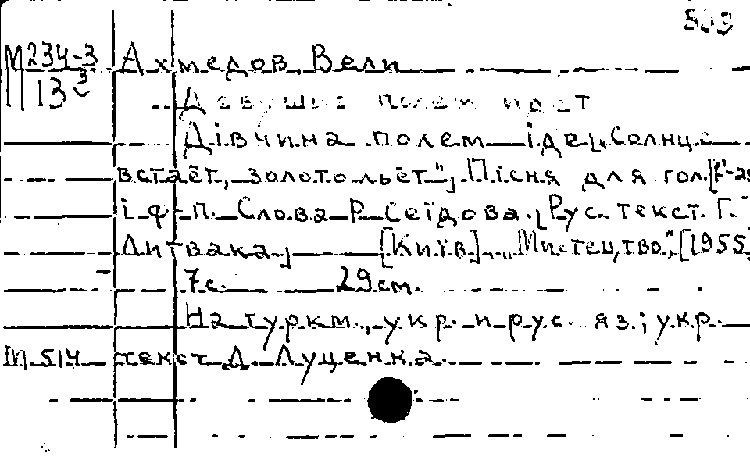 М234-3 Ахмедов, Вели
13
Девушка полем идет
Дівчина полем іде. [„Солнце
встаёт, золото льёт"]. Пісня для гол.
і ф-п. Слова Р. Сеїдова. [Рус. текст Г.
Литвака]. [Київ], „Мистецтво", [1955]
7 с. 29 см.
На туркм., укр. и рус. яз.; укр.
М 514 текст Д. Луценка.